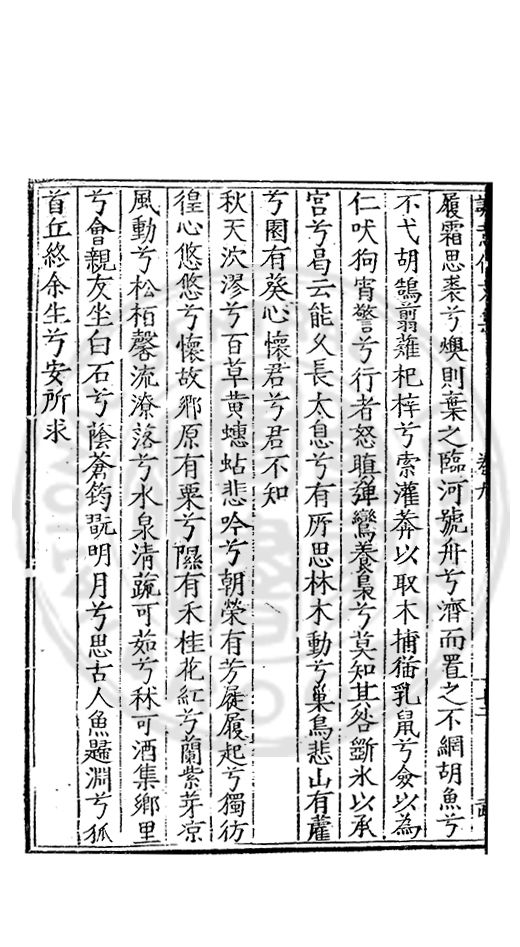 履霜思裘兮燠則棄之臨河號舟兮濟而置之不網胡魚兮
不弋胡鵠翦蘿杞梓兮索灌莽以取木捕猫乳鼠兮僉以為
仁吠狗宵警兮行者怒瞋彈鸞養梟兮莫知其咎斵氷以承
宮兮曷云能久長太息兮有所思林木動兮巢鳥悲山有藿
兮園有葵心懷君兮君不知
秋天泬漻兮百草黄蟪蛄悲吟兮朝榮有芳屣履起兮獨彷
徨心悠悠兮懷故鄉原有粟兮隰有禾桂花紅兮蘭紫芽凉
風動兮松栢馨流潦落兮水泉清蔬可茹兮秫可酒集鄉里
兮會親友坐白石兮蔭蒼筠翫明月兮思古人魚還淵兮狐
首丘終余生兮安所求
卷九